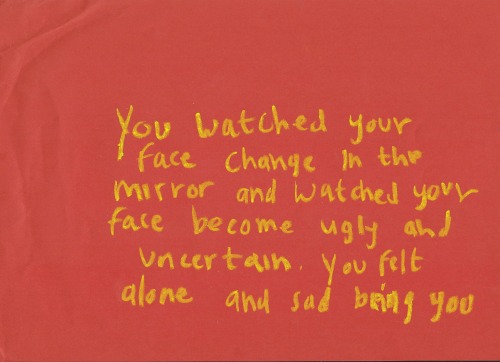 You watched your
face change in the
mirror and watched your
face become ugly and
uncertain. You felt
alone and sad being you